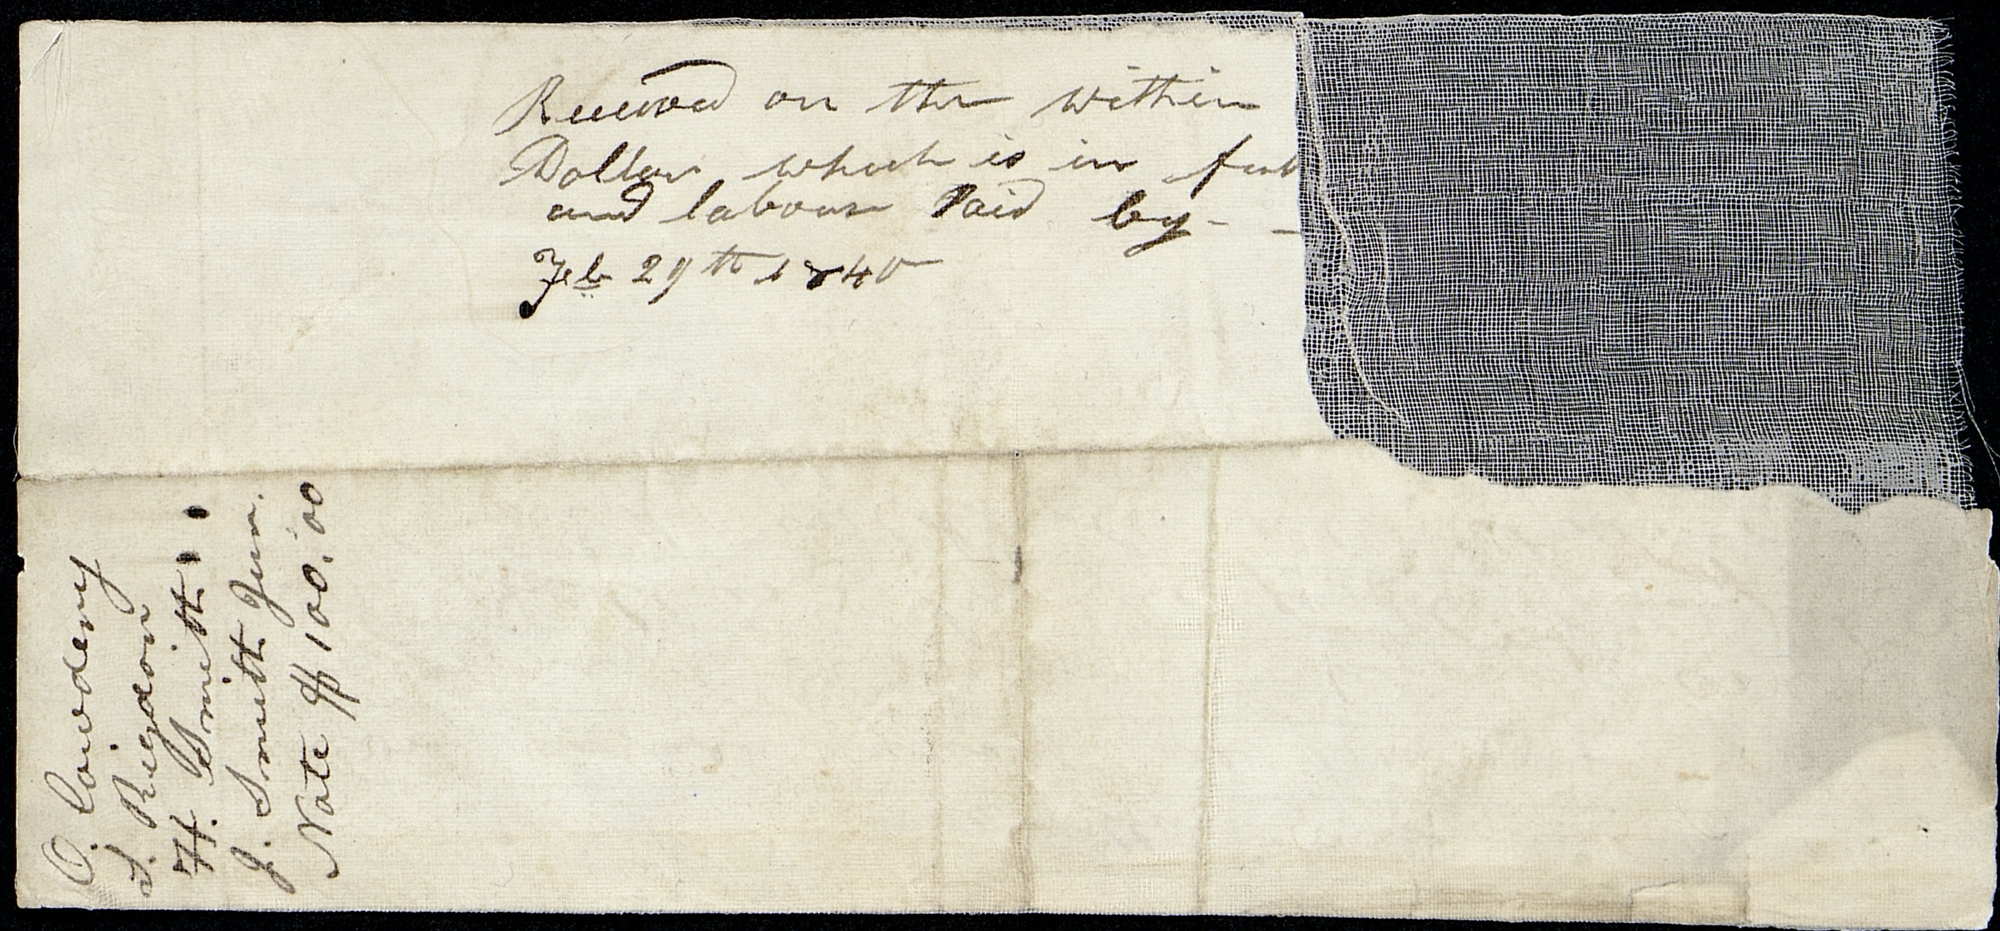 Received on the within
Dollars which is in full
and labour Paid by - -
Feb 29th 1840
O. Cowdery
S. Rigdon
H. Smith
J. Smith Jun.
Note $100.00